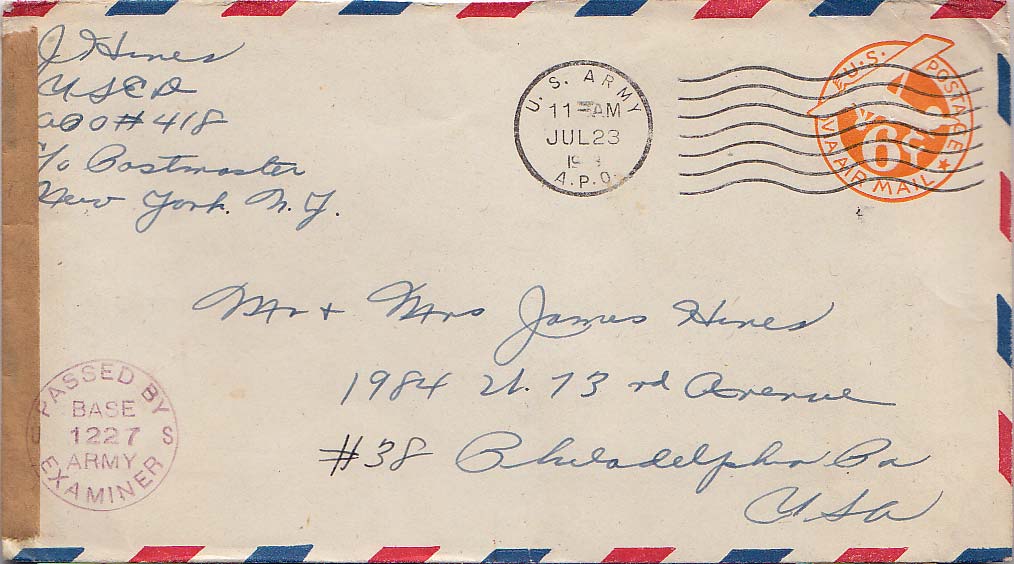 J Hines
USED
APO # 418
c/o Postmaster
New York. N.Y.
U.S. ARMY
11 AM
JUL 23
A.P.O.
U.S. POSTAGE
6¢
VIA AIR MAIL
Mr + Mrs James Hines
1984 N. 73 rd Avenue
#38 Philadelphia Pa
USA
PASSED BY
BASE
U 1227 S
ARMY
EXAMINER